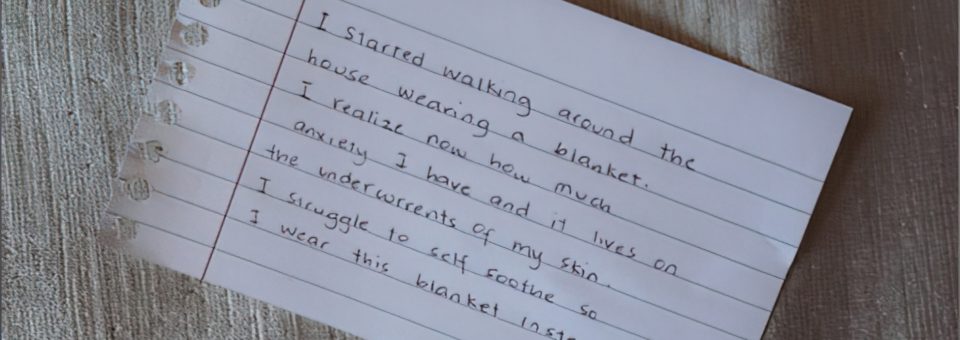 I started walking around the
house wearing a blanket.
I realize now how much
anxiety I have and it lives on
the undercurrents of my skin.
I struggle to self soothe so
I wear this blanket